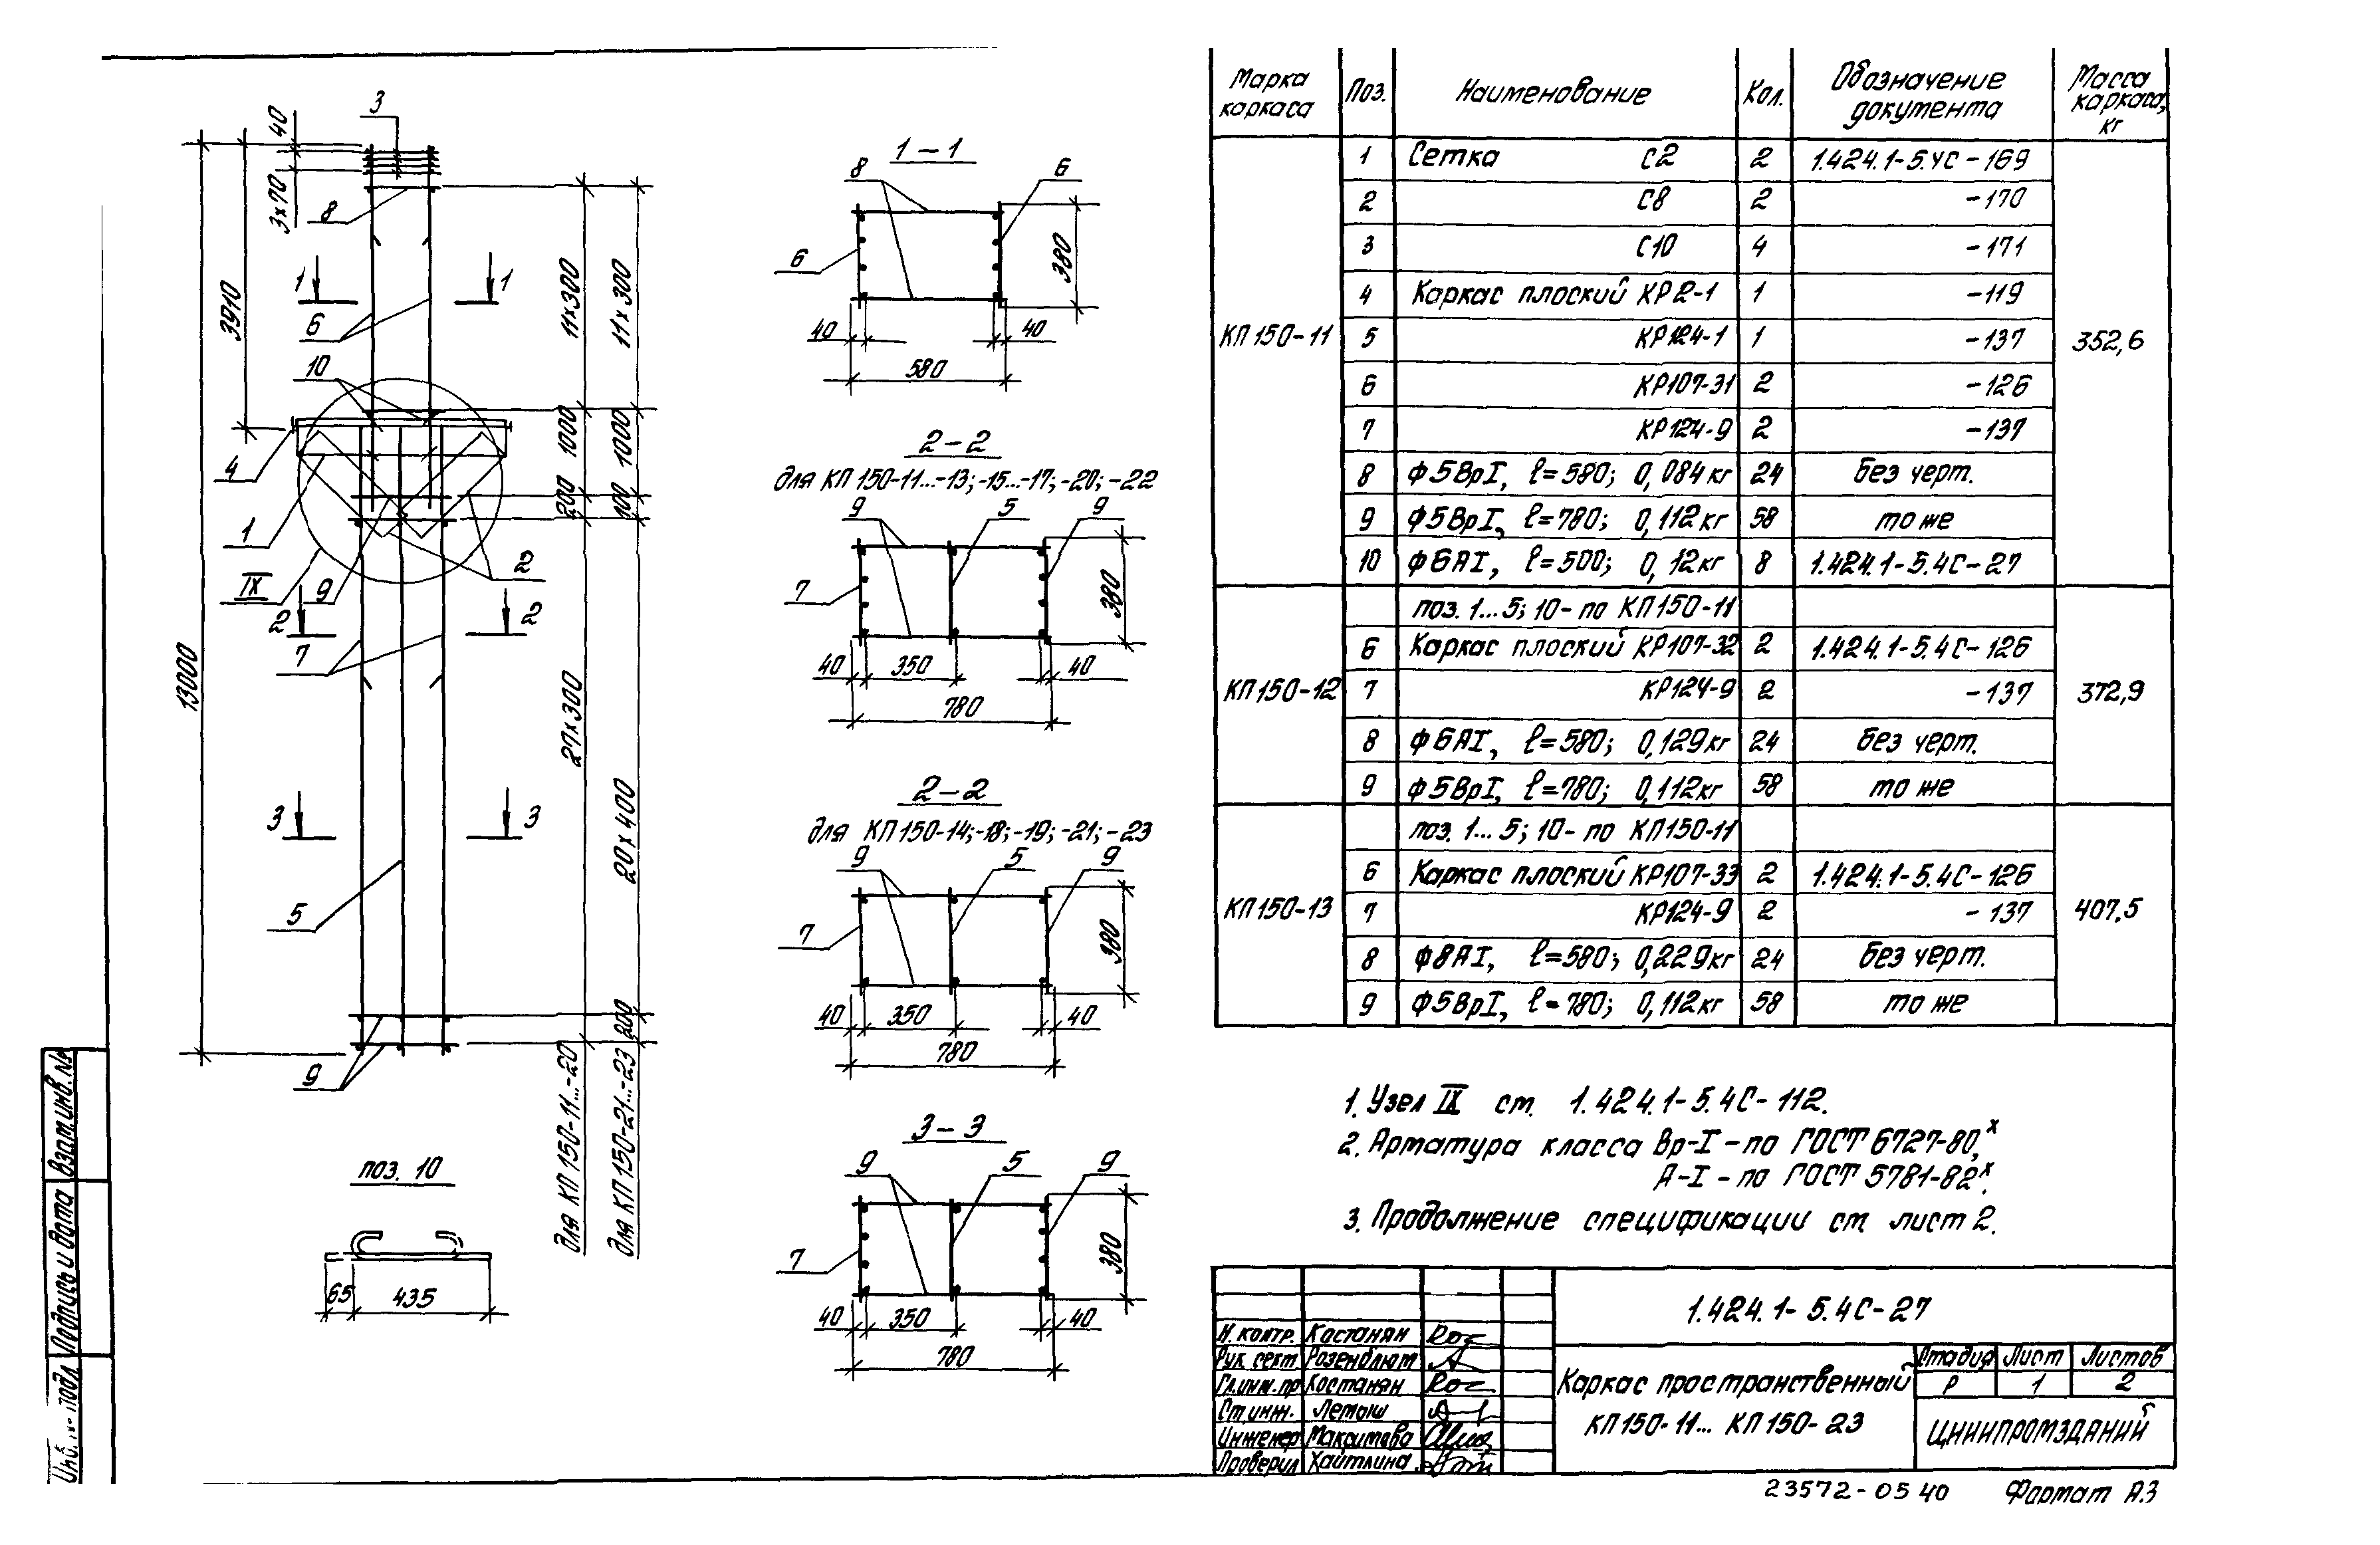 Марка каркаса | Поз. | Наименование | Кол. | Обозначение документа | Масса каркаса, кг
КП150-11 | 1 | Сетка С2 | 2 | 1.424.1-5.4С-169 | 352,6
2 | С8 | 2 | -170
3 | С10 | 4 | -171
4 | Каркас плоский КР2-1 | 1 | -119
5 | КР124-1 | 1 | -137
6 | КР107-31 | 2 | -126
7 | КР124-9 | 2 | -137
8 | Ф5ВрI, ℓ=580; 0,084кг | 24 | без черт.
9 | Ф5ВрI, ℓ=780; 0,112кг | 58 | то же
10 | Ф6АI, ℓ=500; 0,12кг | 8 | 1.424.1-5.4С-27
поз. 1...5; 10- по КП150-11
КП150-12 | 6 | Каркас плоский КР107-32 | 2 | 1.424.1-5.4С-126 | 372,9
7 | КР124-9 | 2 | -137
8 | Ф6АI, ℓ=580; 0,129кг | 24 | без черт.
9 | Ф5ВрI, ℓ=780; 0,112кг | 58 | то же
поз. 1...5; 10- по КП150-11
КП150-13 | 6 | Каркас плоский КР107-33 | 2 | 1.424.1-5.4С-126 | 407,5
7 | КР124-9 | 2 | -137
8 | Ф8АI, ℓ=580; 0,229кг | 24 | без черт.
9 | Ф5ВрI, ℓ=780; 0,112кг | 58 | то же
3
40
3х70
8
3910
13000
1
1
6
10
4
1
IX
9
2
2
2
7
3
3
5
9
11х300
1000
200
27х300
для КП150-11...-20
11х300
1000
100
20х400
200
для КП150-21...-23
поз. 10
65
435
1-1
8
6
6
380
40
40
580
2-2
для КП150-11...-13;-15...-17;-20;-22
9
5
9
7
380
40
350
40
780
2-2
для КП150-14;-18;-19;-21;-23
9
5
9
7
380
40
350
40
780
3-3
9
5
9
7
380
40
350
40
780
1. Узел IX см. 1.424.1-5.4С-112.
2. Арматура класса Вр-I-по ГОСТ 6727-80,ˣ
А-I-по ГОСТ 5781-82ˣ.
3. Продолжение спецификации см. лист 2.
1.424.1-5.4С-27
Н. контр. Костанян
Рук. сект. Розенблюм
Гл.инж.пр Костанян
Ст.инж. Летыш
Инженер Макситова
Проверил Хайтлина
Каркас пространственный
КП150-11... КП150-23
Стадия | Лист | Листов
Р | 1 | 2
ЦНИИПРОМЗДАНИЙ
23572-05 40
Формат А3
Взам.инв.№
Подпись и дата
Инв. № подл